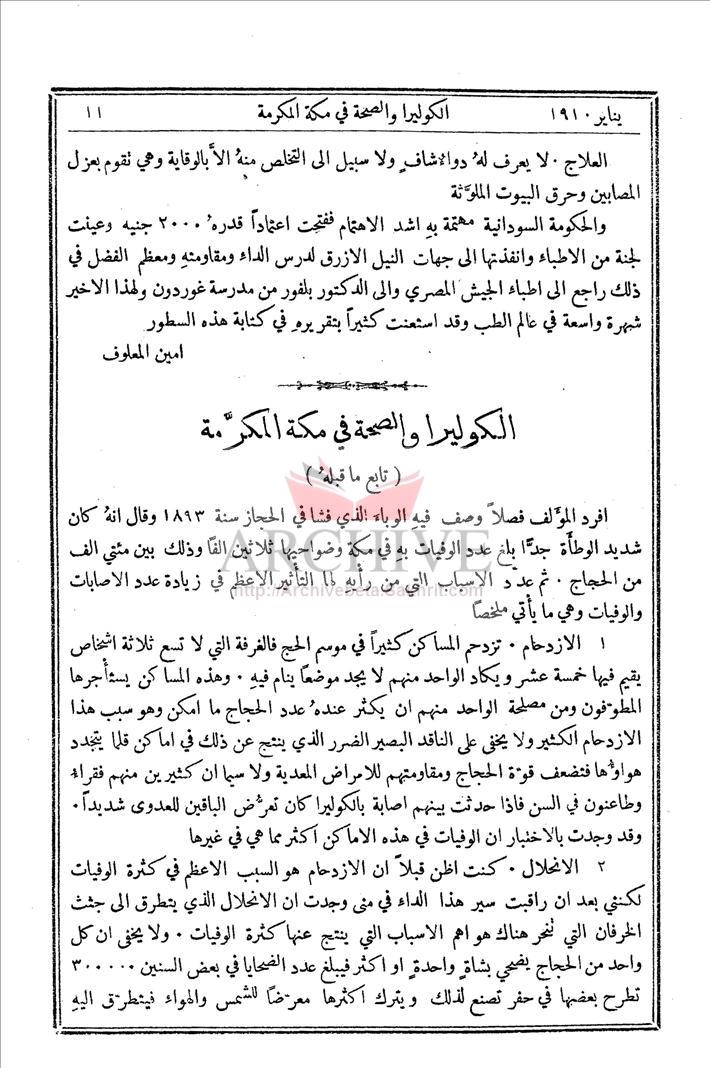 يناير ١٩١٠
الكوليرا والصحة في مكة المكرمة
١١
العلاج ٠ لا يعرف لهُ دواءٌ شافٍ ولا سبيل الى التخلص منهُ الاَّ بالوقاية وهي تقوم بعزل
المصابين وحرق البيوت الملوَّثة
والحكومة السودانية مهتمة بهِ اشد الاهتمام ففتحت اعتماداً قدرهُ ٢٠٠٠ جنيه وعينت
لجنة من الاطباء وانفذتها الى جهات النيل الازرق لدرس الداء ومقاومتهِ ومعظم الفضل في
ذلك راجع الى اطباء الجيش المصري والى الدكتور بلفور من مدرسة غوردون ولهذا الاخير
شهرة واسعة في عالم الطب وقد استعنت كثيراً بتقريرهِ في كتابة هذه السطور
امين المعلوف
الكوليرا والصحة في مكة المكرَّمة
( تابع ما قبلهُ )
افرد المؤَلف فصلاً وصف فيهِ الوباء الذي فشا في الحجاز سنة ١٨٩٣ وقال انهُ كان
شديد الوطأَة جدًّا بلغ عدد الوفيات به في مكة وضواحيها ثلاثين الفًا وذلك بين مئتي الف
من الحجاج ٠ ثم عدَّد الاسباب التي من رأيهِ لها التأْثير الاعظم في زيادة عدد الاصابات
والوفيات وهي ما يأْتي ملخصًا
١ الازدحام ٠ تزدحم المساكن كثيراً في موسم الحج فالغرفة التي لا تسع ثلاثة اشخاص
يقيم فيها خمسة عشر ويكاد الواحد منهم لا يجد موضعًا ينام فيهِ ٠ وهذه المساكن يستأْجرها
المطوّفون ومن مصلحة الواحد منهم ان يكثر عندهُ عدد الحجاج ما امكن وهو سبب هذا
الازدحام الكثير ولا يخفى على الناقد البصير الضرر الذي ينتج عن ذلك في اماكن قلما يتجدد
هواؤُها فتضعف قوَّة الحجاج ومقاومتهم للامراض المعدية ولا سيما ان كثيرين منهم فقراء
وطاعنون في السن فاذا حدثت بينهم اصابة بالكوليرا كان تعرُّض الباقين للعدوى شديداً ٠
وقد وجدت بالاختبار ان الوفيات في هذه الاماكن اكثر مما هي في غيرها
٢ الانحلال ٠ كنت اظن قبلاً ان الازدحام هو السبب الاعظم في كثرة الوفيات
لكنني بعد ان راقبت سير هذا الداء في منى وجدت ان الانحلال الذي يتطرق الى جثث
الخرفان التي تُنحر هناك هو اهم الاسباب التي ينتج عنها كثرة الوفيات ٠ ولا يخفى ان كل
واحد من الحجاج يضحي بشاةٍ واحدةٍ او اكثر فيبلغ عدد الضحايا في بعض السنين ٣٠٠٠٠٠
تطرح بعضها في حفر تصنع لذلك ويترك اكثرها معرَّضًا للشمس والهواء فيتطرَّق اليهِ
ARCHIVE
http://Archivebeta.Sakhrit.com